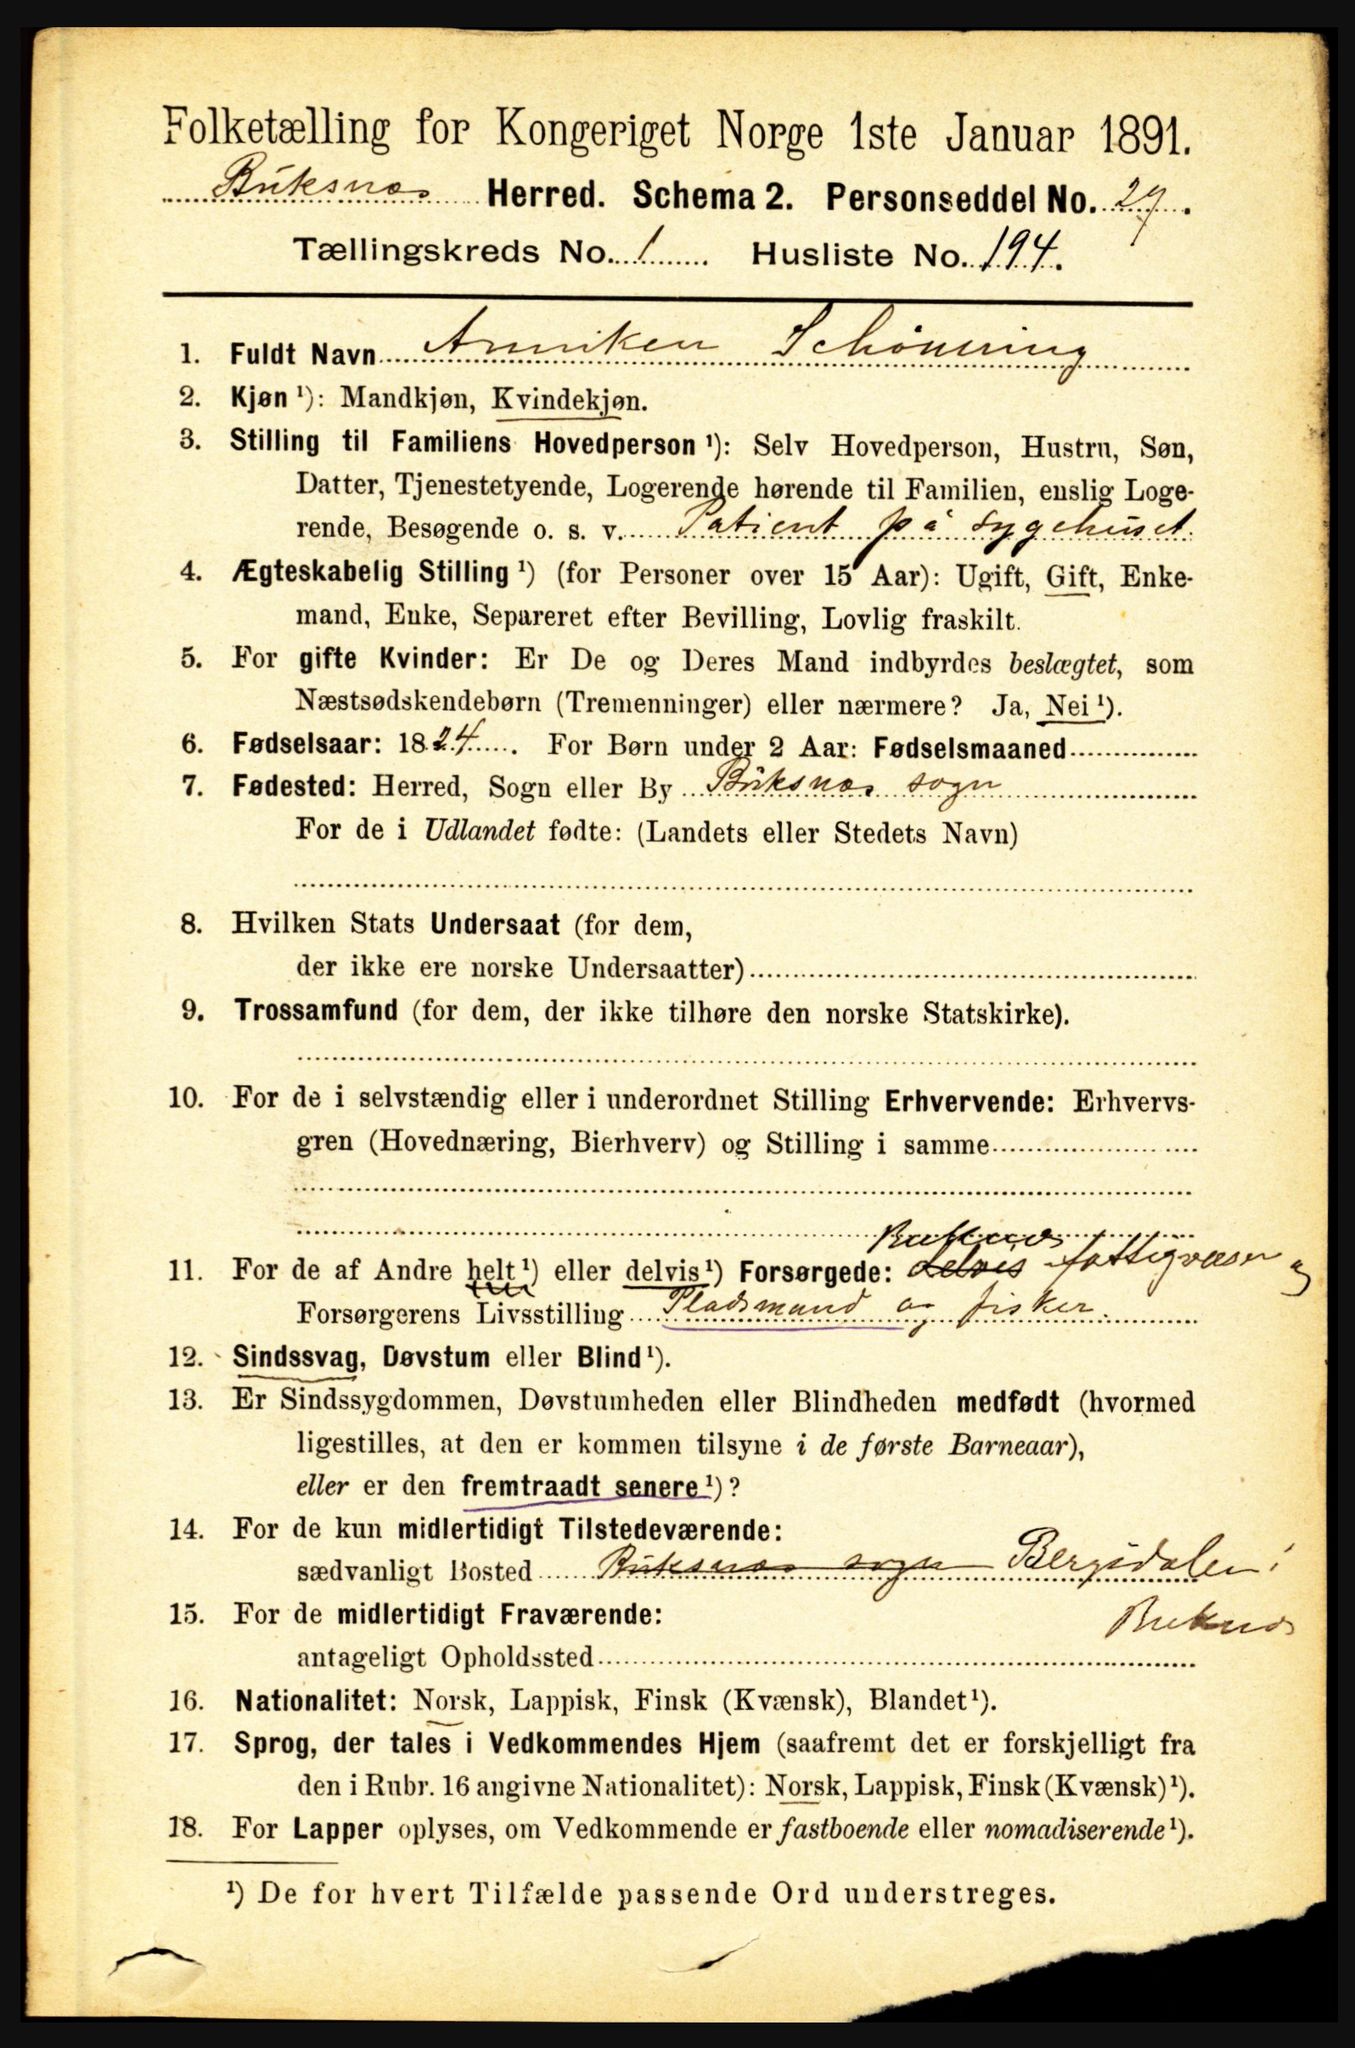 Folketælling for Kongeriget Norge 1ste Januar 1891.
Buksnæs Herred. Schema 2. Personseddel No. 29.
Tællingskreds No. 1 Husliste No. 194.
1. Fuldt Navn Anniken Schönning
2. Kjøn ¹): Mandkjøn, Kvindekjøn.
3. Stilling til Familiens Hovedperson ¹): Selv Hovedperson, Hustru, Søn,
Datter, Tjenestetyende, Logerende hørende til Familien, enslig Loge-
rende, Besøgende o. s. v. Patient på sygehuset.
4. Ægteskabelig Stilling ¹) (for Personer over 15 Aar): Ugift, Gift, Enke-
mand, Enke, Separeret efter Bevilling, Lovlig fraskilt.
5. For gifte Kvinder: Er De og Deres Mand indbyrdes beslægtet, som
Næstsødskendebørn (Tremenninger) eller nærmere? Ja, Nei ¹).
6. Fødselsaar: 1824. For Børn under 2 Aar: Fødselsmaaned
7. Fødested: Herred, Sogn eller By Buksnæs sogn
For de i Udlandet fødte: (Landets eller Stedets Navn)
8. Hvilken Stats Undersaat (for dem,
der ikke ere norske Undersaatter)
9. Trossamfund (for dem, der ikke tilhøre den norske Statskirke).
10. For de i selvstændig eller i underordnet Stilling Erhvervende: Erhvervs-
gren (Hovednæring, Bierhverv) og Stilling i samme
Buksnæs
11. For de af Andre helt ¹) eller delvis ¹) Forsørgede: delvis fattigvæsen og
Forsørgerens Livsstilling Pladsmand og fisker.
12. Sindssvag, Døvstum eller Blind ¹).
13. Er Sindssygdommen, Døvstumheden eller Blindheden medfødt (hvormed
ligestilles, at den er kommen tilsyne i de første Barneaar),
eller er den fremtraadt senere ¹)?
14. For de kun midlertidigt Tilstedeværende:
sædvanligt Bosted Buksnæs sogn Bergsdalen i
15. For de midlertidigt Fraværende: Buksnæs
antageligt Opholdssted
16. Nationalitet: Norsk, Lappisk, Finsk (Kvænsk), Blandet ¹).
17. Sprog, der tales i Vedkommendes Hjem (saafremt det er forskjelligt fra
den i Rubr. 16 angivne Nationalitet): Norsk, Lappisk, Finsk (Kvænsk) ¹).
18. For Lapper oplyses, om Vedkommende er fastboende eller nomadiserende ¹).
¹) De for hvert Tilfælde passende Ord understreges.